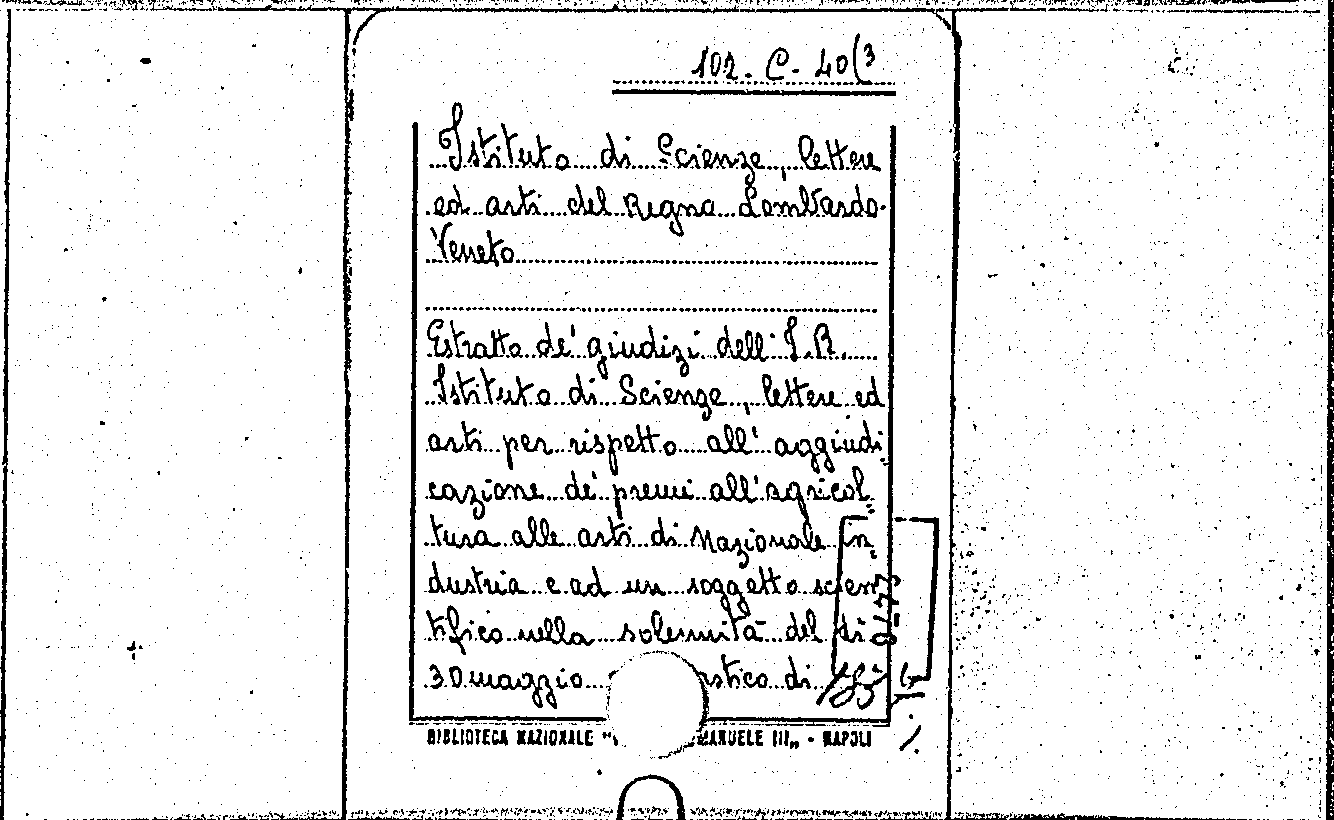 102. C. 40(3
Istituto di Scienze, lettere
ed arti del Regno Lombardo-
Veneto
Estratto de' giudizi dell' I. R.
Istituto di Scienze, lettere ed
arti per rispetto all' aggiudi-
cazione de' premi all' agricol-
tura alle arti di Nazionale in-
dustria e ad un soggetto scien-
tifico nella solennità del dì
30 maggio di
BIBLIOTECA NAZIONALE " MANUELE III„ - NAPOLI